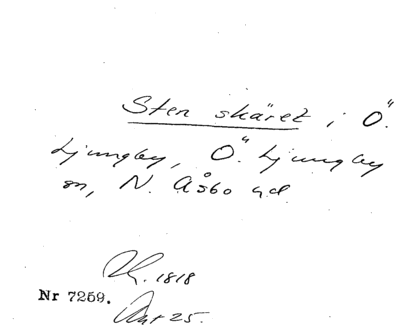 Sten skäret i Ö.
Ljungby, Ö. Ljungby
sn, N. Åsbo hd
1818
Nr 7259.
Akt 25.